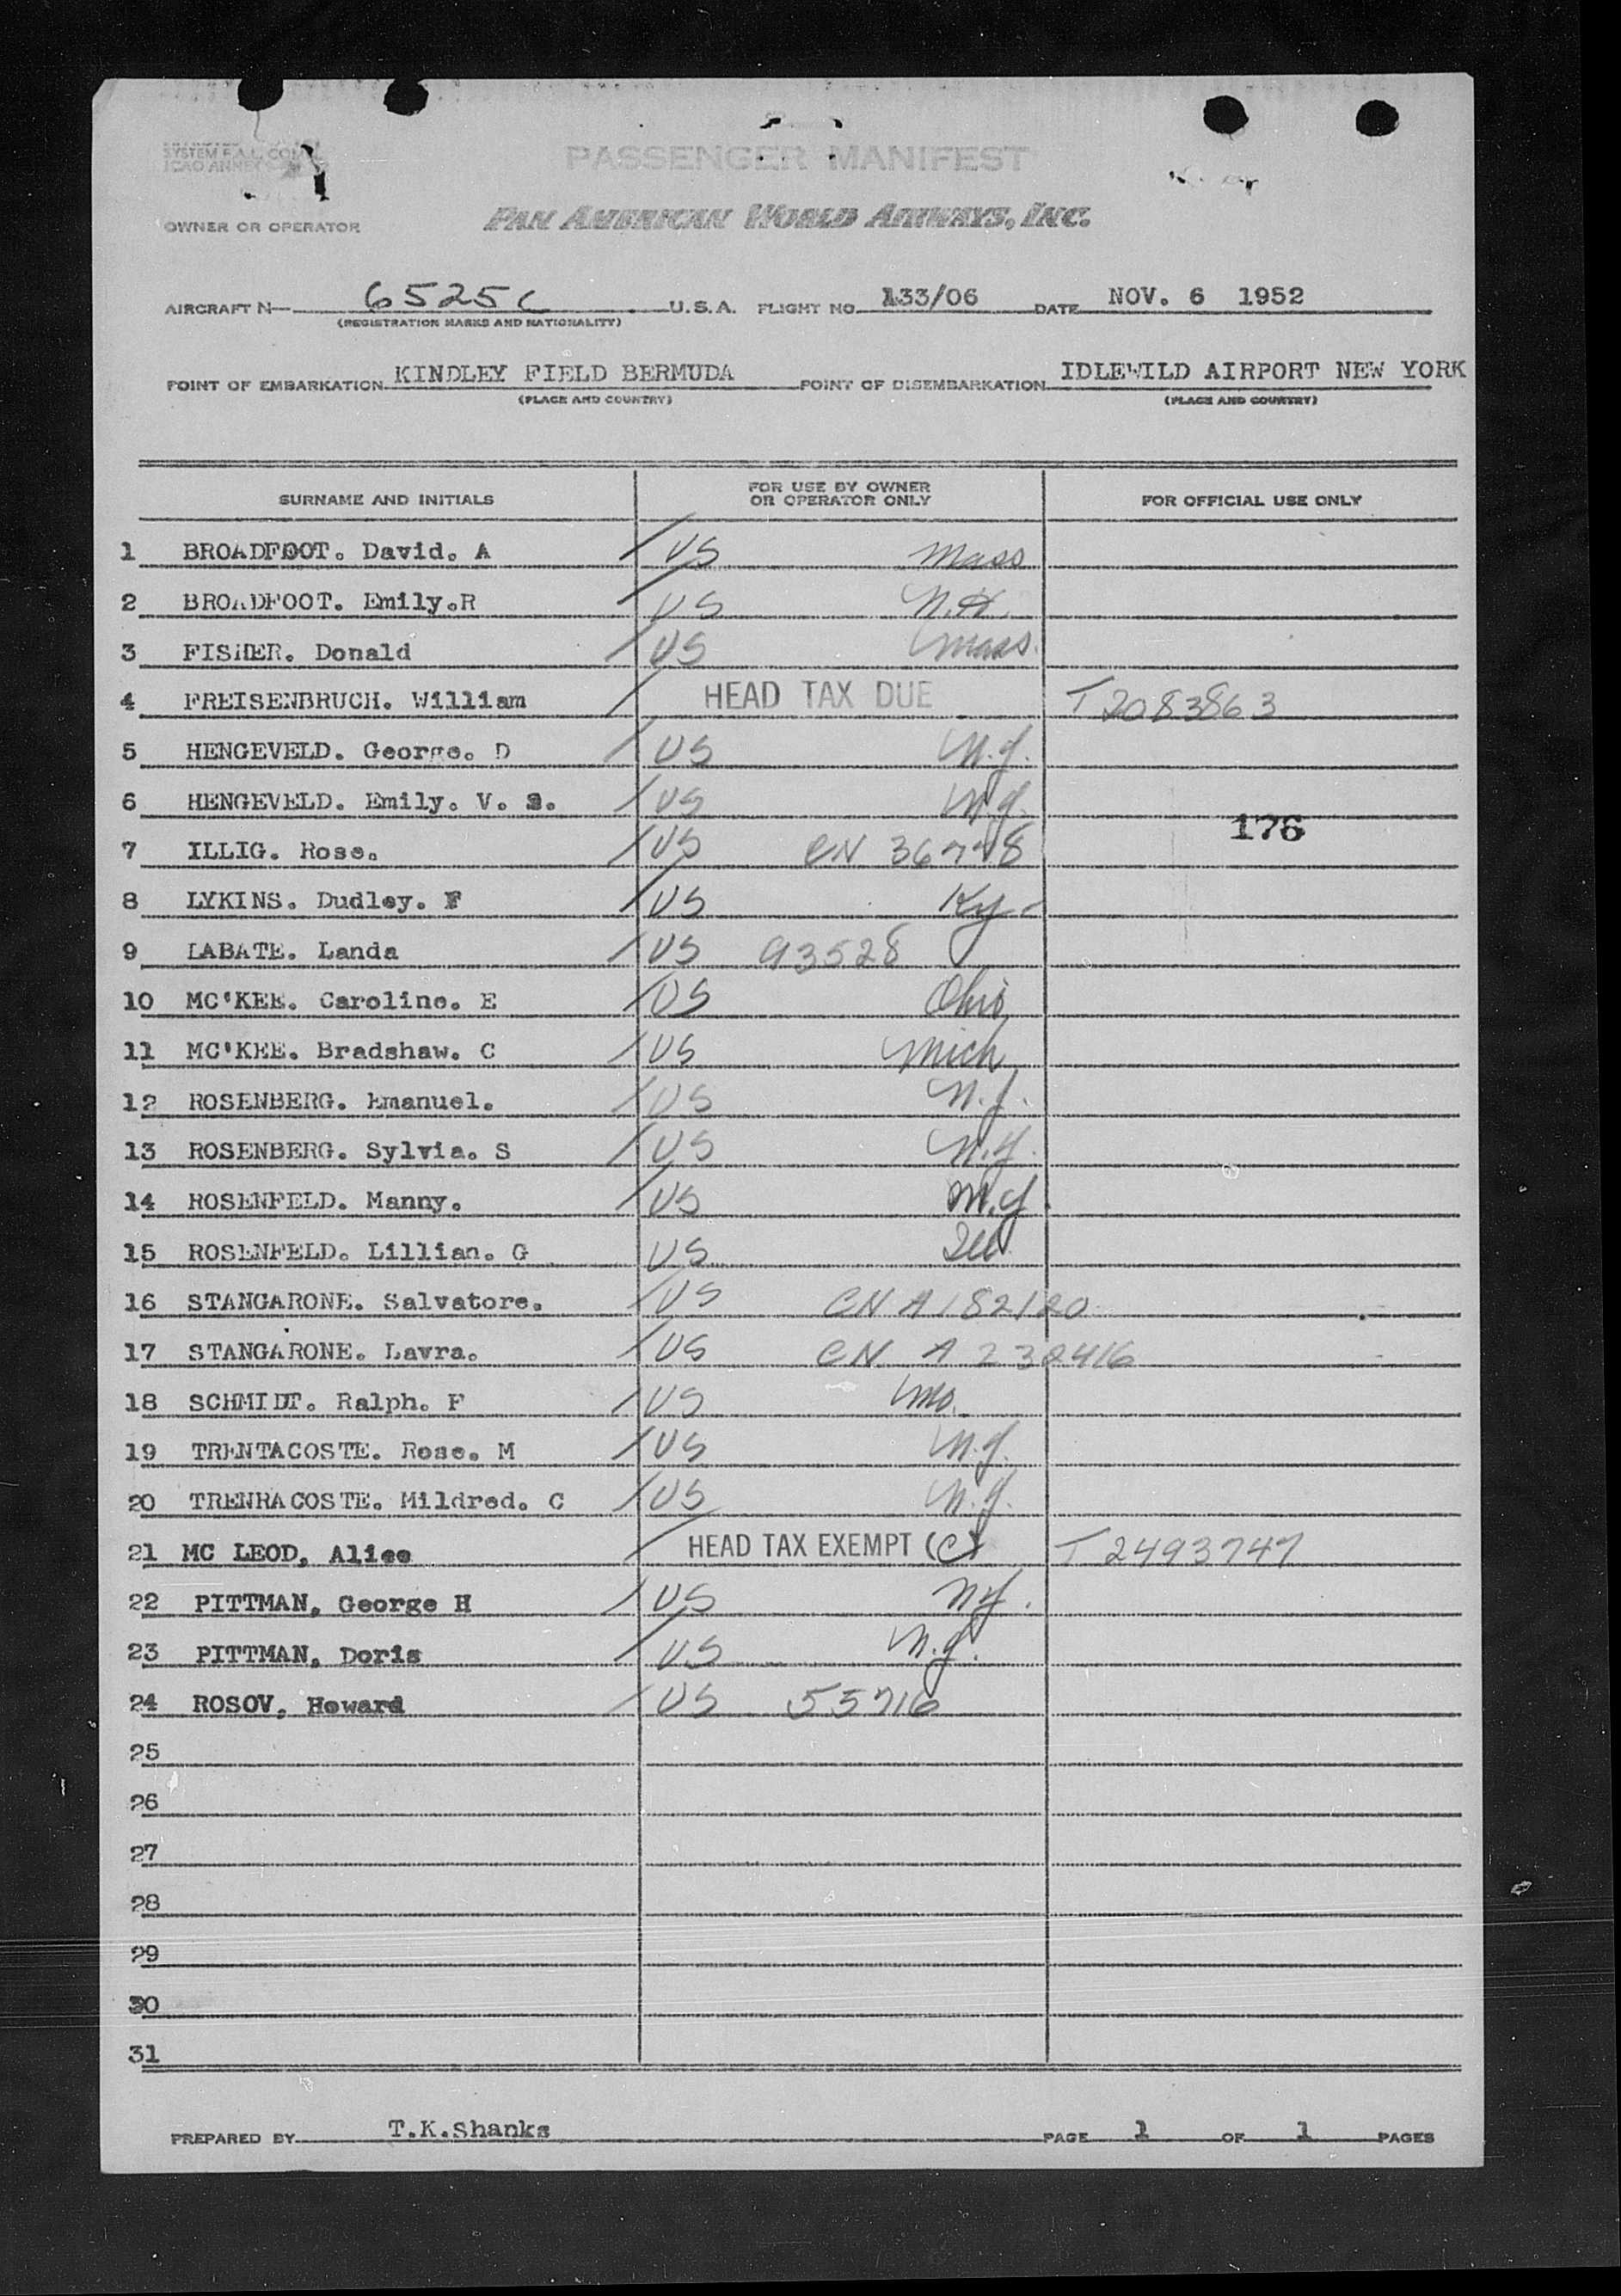 PASSENGER MANIFEST
SYSTEM F.A.L.
ICAO ANNEX
OWNER OR OPERATOR PAN AMERICAN WORLD AIRWAYS, INC.
AIRCRAFT N— 6525C U.S.A. FLIGHT NO. 133/06 DATE NOV. 6 1952
(REGISTRATION MARKS AND NATIONALITY)
POINT OF EMBARKATION KINDLEY FIELD BERMUDA POINT OF DISEMBARKATION IDLEWILD AIRPORT NEW YORK
(PLACE AND COUNTRY) (PLACE AND COUNTRY)
SURNAME AND INITIALS FOR USE BY OWNER OR OPERATOR ONLY FOR OFFICIAL USE ONLY
1 BROADFOOT. David. A US Mass
2 BROADFOOT. Emily.R US N.H.
3 FISHER. Donald US Mass.
4 FREISENBRUCH. William HEAD TAX DUE T2083863
5 HENGEVELD. George. D US N.J.
6 HENGEVELD. Emily. V. US
176
7 ILLIG. Rose. US CN
8 LYKINS. Dudley. F US Ky
9 LABATE. Landa US 93528
10 MC'KEE. Caroline. E US Ohio
11 MC'KEE. Bradshaw. C US Mich
12 ROSENBERG. Emanuel. US N.J.
13 ROSENBERG. Sylvia. S US N.Y.
14 ROSENFELD. Manny. US
15 ROSENFELD. Lillian. G US Ill
16 STANGARONE. Salvatore. US CN A182120
17 STANGARONE. Lavra. US CN A 232416
18 SCHMIDT. Ralph. F US Mo.
19 TRENTACOSTE. Rose. M US
20 TRENRACOSTE. Mildred. C US
21 MC LEOD, Alice HEAD TAX EXEMPT (C) T2493747
22 PITTMAN, George H US NY.
23 PITTMAN, Doris US
24 ROSOV, Howard US 55716
25
26
27
28
29
30
31
PREPARED BY T.K.Shanks PAGE 1 OF 1 PAGES